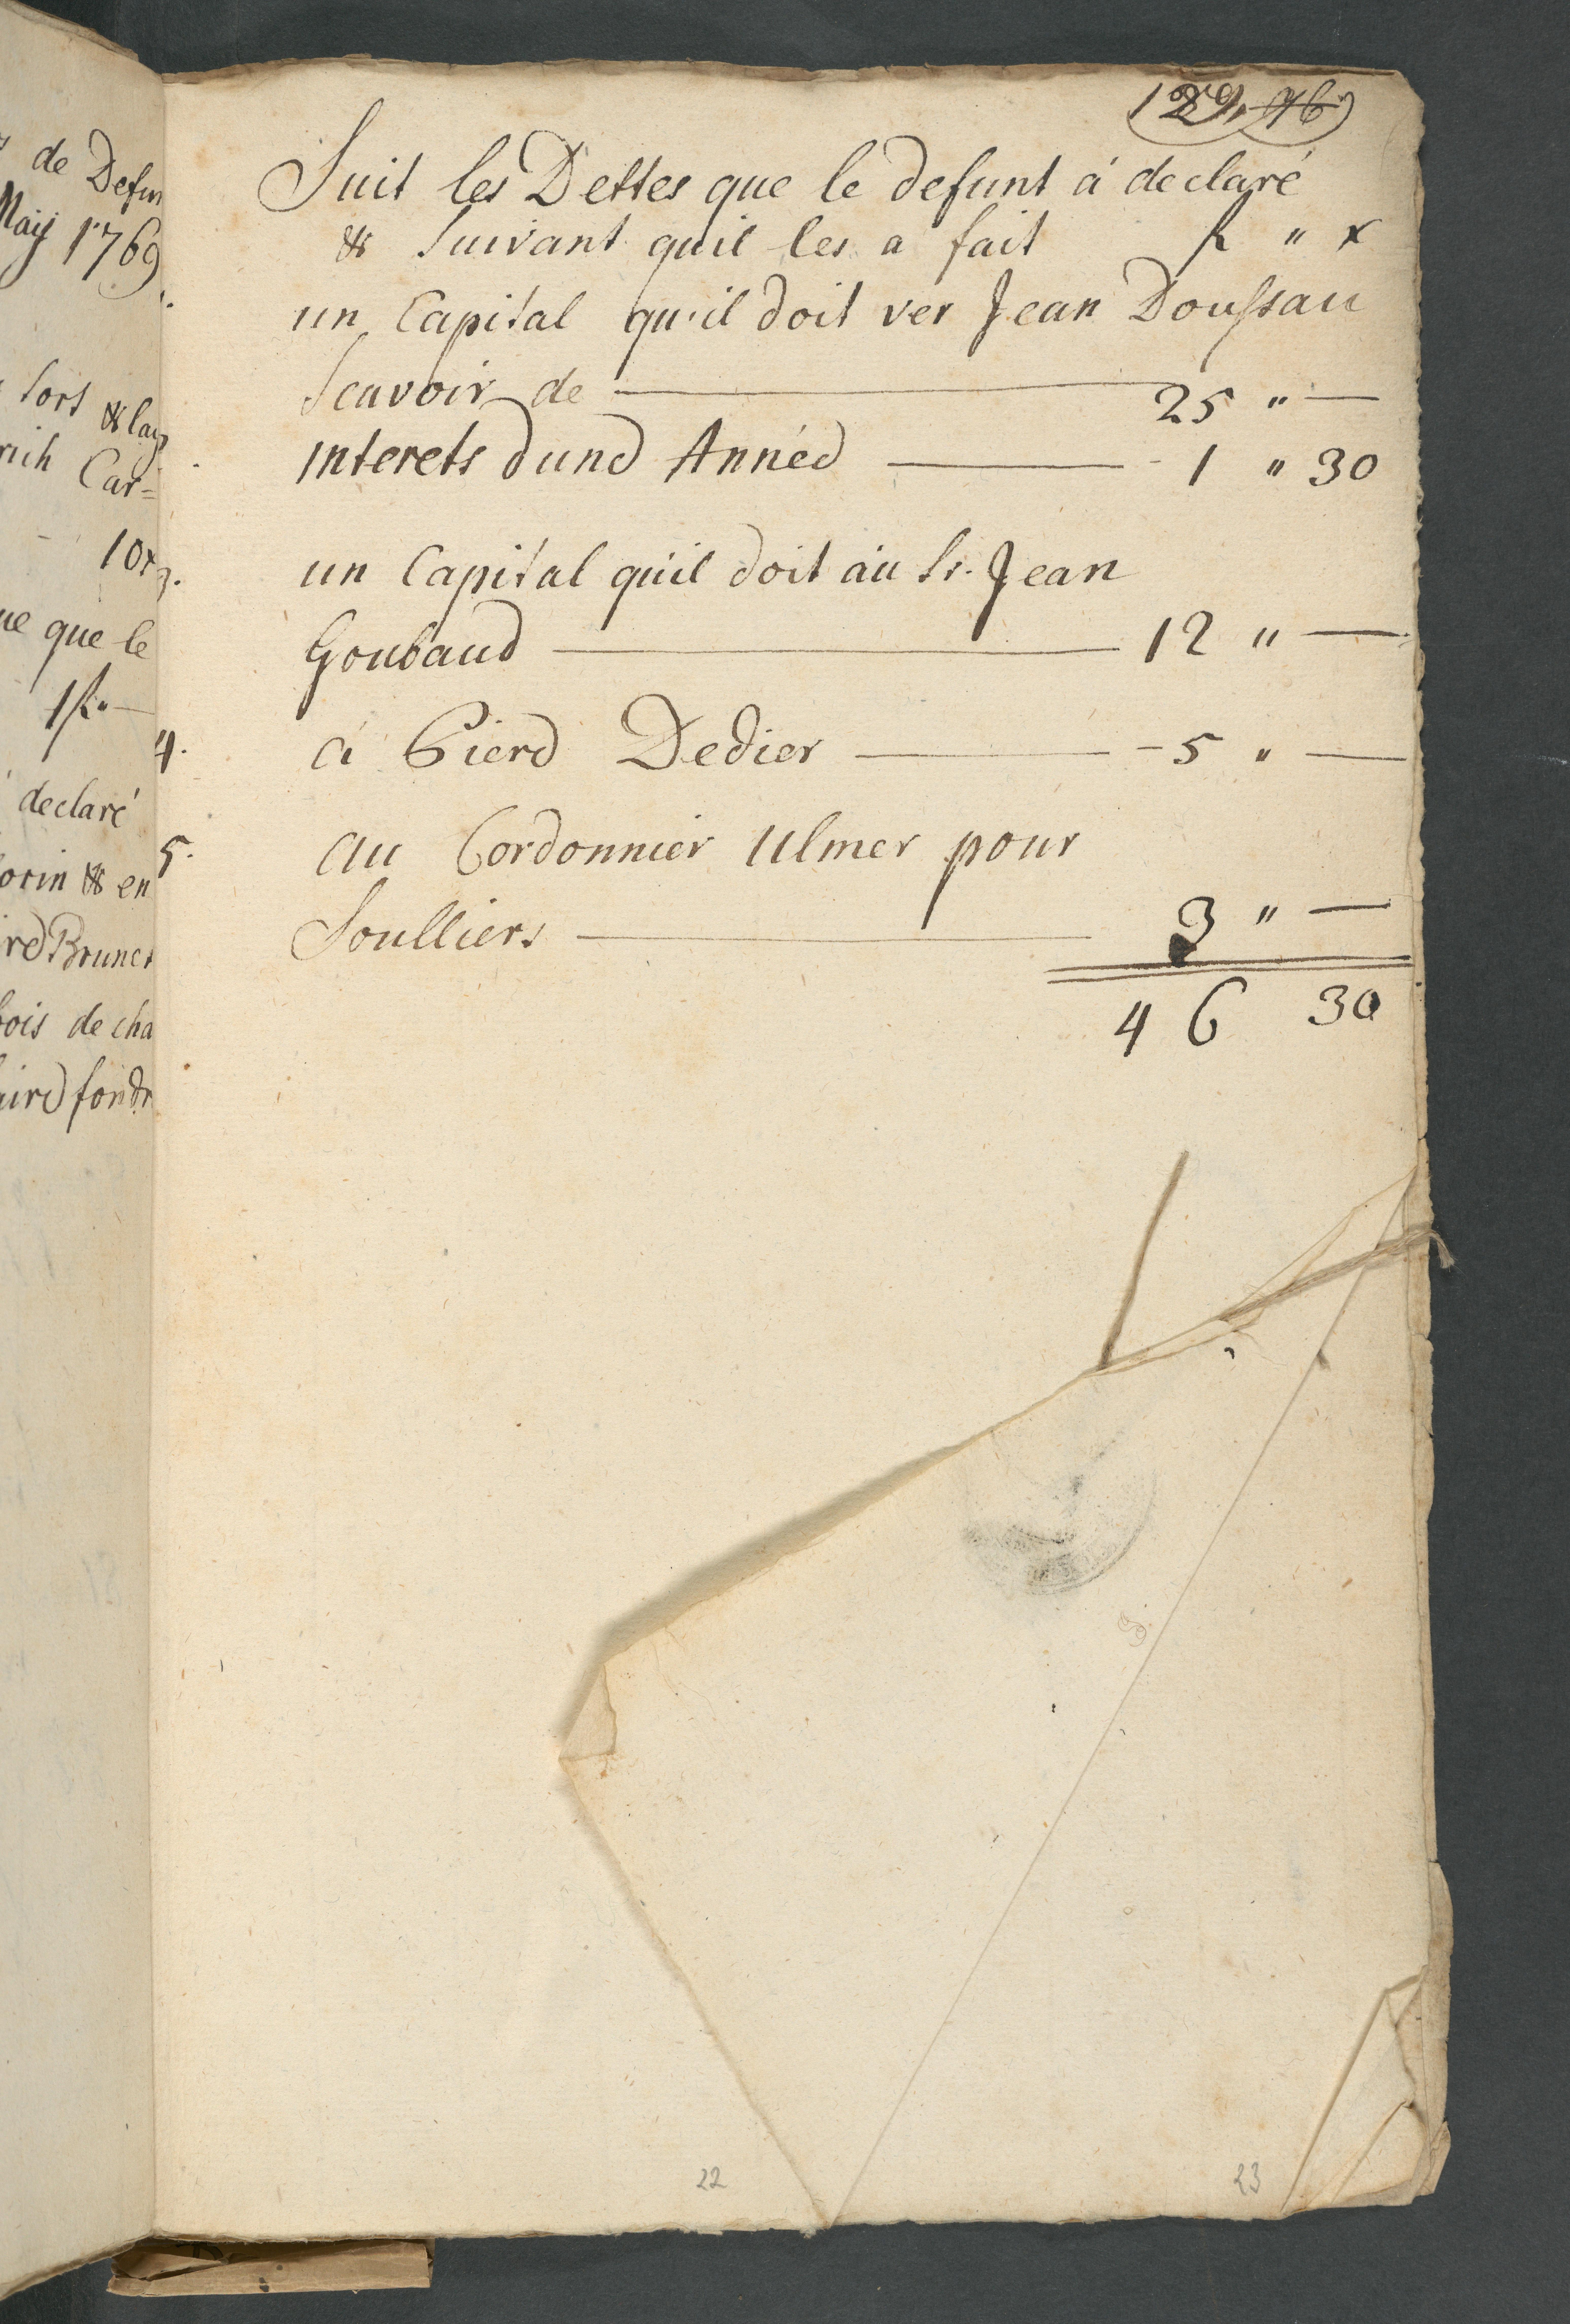 129. 46
Suit les Dettes que le defunt á declaré
& Suivant quil les a fait f " x
un Capital qu'il doit ver Jean Doussau
Scavoir de — 25 " —
Interets dune Année — 1 " 30
3. un Capital quil doit au Sr. Jean
Goubaud — 12 " —
4. á Piere Dedier — 5 " —
5. Au Cordonnier Ulmer pour
Soulliers — 3 " —
46 30
22 23
de Defun
Maÿ 1769
sort & lay
rich Car=
10x
ue que le
1f. —
declaré
orin & en
re Brunet
bois de cha
aire fondr